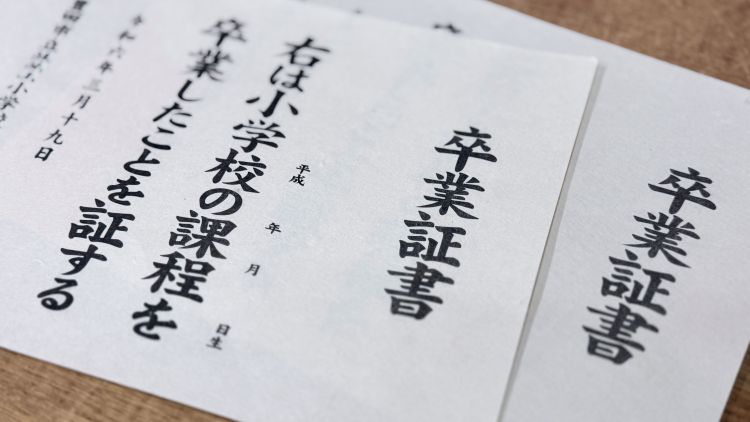 卒業証書
平成 年 月 日生
右は小学校の課程を
卒業したことを証する
令和六年三月十九日
卒業証書